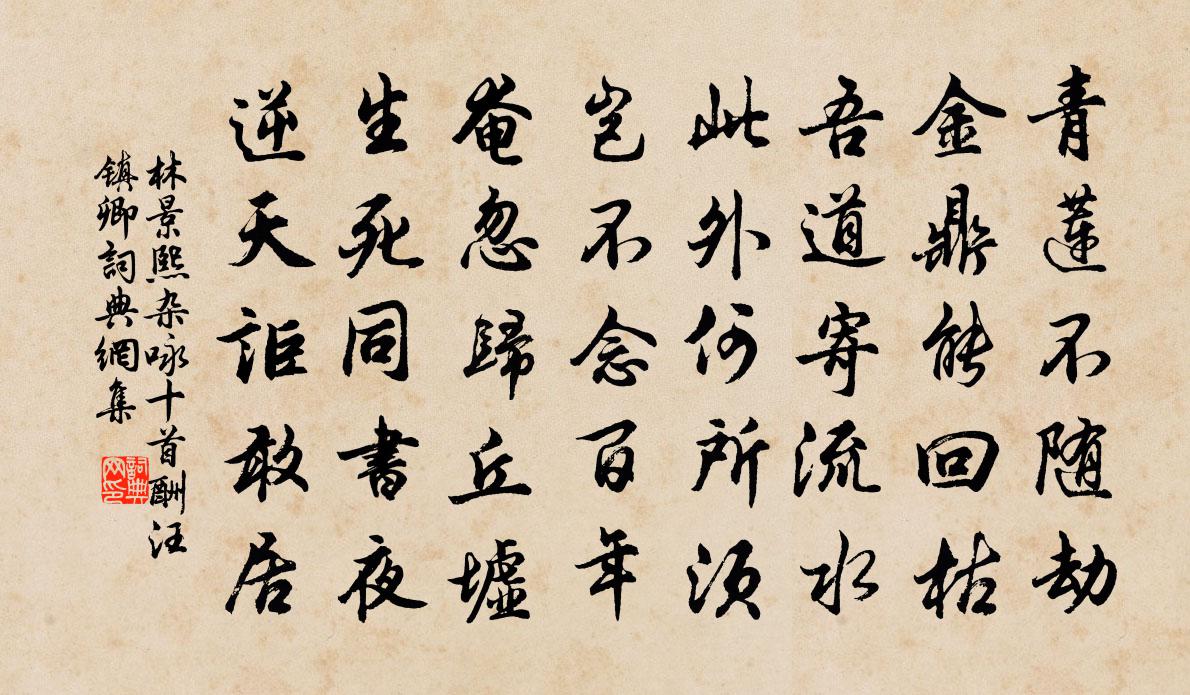 青蓮不随劫
金鼎能回枯
吾道寄流水
此外何所須
岂不念百年
奄忽歸丘墟
生死同書夜
逆天詎敢居
林景熙杂咏十首酬汪
鎮卿詞典網集
詞典网印